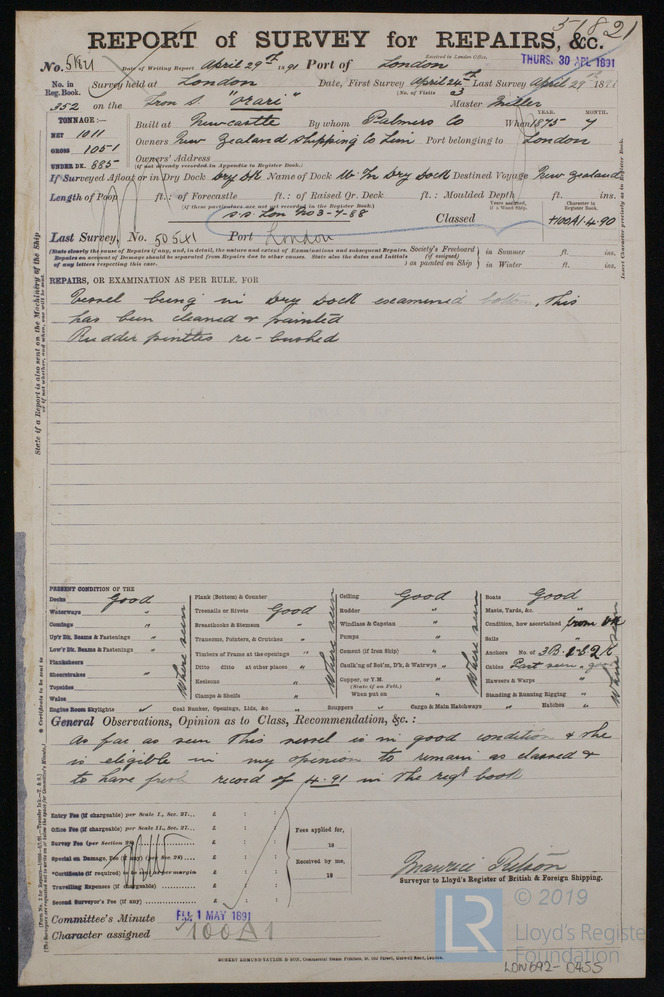 51821
REPORT of SURVEY for REPAIRS, &c.
Received in London Office,
THURS. 30 APL 1891
No. 51821 Date of Writing Report April 29th 1891 Port of London
No. in Reg. Book. Survey held at London Date, First Survey April 24th Last Survey April 29th 1891
(No. of Visits 3)
352 on the Iron S. "Orari" Master Miller
TONNAGE:—
NET 1011
GROSS 1051
UNDER DK. 885
YEAR. MONTH.
Built at Newcastle By whom Palmers Co When 1875 7
Owners New Zealand Shipping Co Lim Port belonging to London
Owners' Address
(if not already recorded in Appendix to Register Book.)
If Surveyed Afloat or in Dry Dock Dry Dk Name of Dock W. In Dry Dock Destined Voyage New Zealand
Length of Poop ft.: of Forecastle ft.: of Raised Qr. Deck ft.: Moulded Depth ft. ins.
(if these particulars are not yet recorded in the Register Book.)
s.s. Lon No 3-7-88
Classed
Years assigned, if a Wood Ship.
Character in Register Book.
+100A1.4.90
Last Survey, No. 50541 Port London
(State clearly the cause of Repairs (if any), and, in detail, the nature and extent of Examinations and subsequent Repairs. Repairs on account of Damage should be separated from Repairs due to other causes. State also the dates and Initials of any letters respecting this case.
Society's Freeboard (if assigned) as painted on Ship
in Summer ft. ins.
in Winter ft. ins.
REPAIRS, OR EXAMINATION AS PER RULE, FOR
Vessel being in Dry Dock examined bottom, this
has been cleaned & painted
Rudder pintles re-bushed
State if a Report is also sent on the Machinery of the Ship
PRESENT CONDITION OF THE
Decks Good
Waterways "
Comings "
Up'r Dk. Beams & Fastenings "
Low'r Dk. Beams & Fastenings "
Planksheers
Sheerstrakes "
Topsides
Wales
Engine Room Skylights "
Where seen
Plank (Bottom) & Counter
Treenails or Rivets Good
Breasthooks & Stemson "
Transoms, Pointers, & Crutches "
Timbers of Frame at the openings "
Ditto ditto at other places "
Keelsons "
Clamps & Shelfs
Coal Bunker, Openings, Lids, &c. "
Where seen
Ceiling Good
Rudder "
Windlass & Capstan "
Pumps "
Cement (if from Ship) "
Caulk'g of Bot'm, D'k, & Waterwys "
Copper, or Y.M.
(State if on Felt.)
When put on
Scuppers " Cargo & Main Hatchways "
Where seen
Boats Good
Masts, Yards, &c. "
Condition, how ascertained from Dk
Sails "
Anchors No. of 3B. 1S 2K
Cables Part seen, good
Hawsers & Warps
Standing & Running Rigging "
Hatches "
Where seen
General Observations, Opinion as to Class, Recommendation, &c.:
As far as seen this vessel is in good condition & she
is eligible in my opinion to remain as classed &
to have fresh record of 4.91 in the Reg'r book
Entry Fee (if chargeable) per Scale I., Sec. 27... £ : :
Office Fee (if chargeable) per Scale II., Sec. 27... £ : :
Survey Fee (per Section 28) £ : :
Special on Damage, Fee (if any) (per Sec. 28) £ : :
Travelling Expenses (if chargeable) £ : :
Second Surveyor's Fee (if any) £ : :
Fees applied for,
18
Received by me,
18
Surveyor to Lloyd's Register of British & Foreign Shipping.
Committee's Minute FRI. 1 MAY 1891
Character assigned 100A1
© 2019
LR
Lloyd's Register
Foundation
LON692-0455